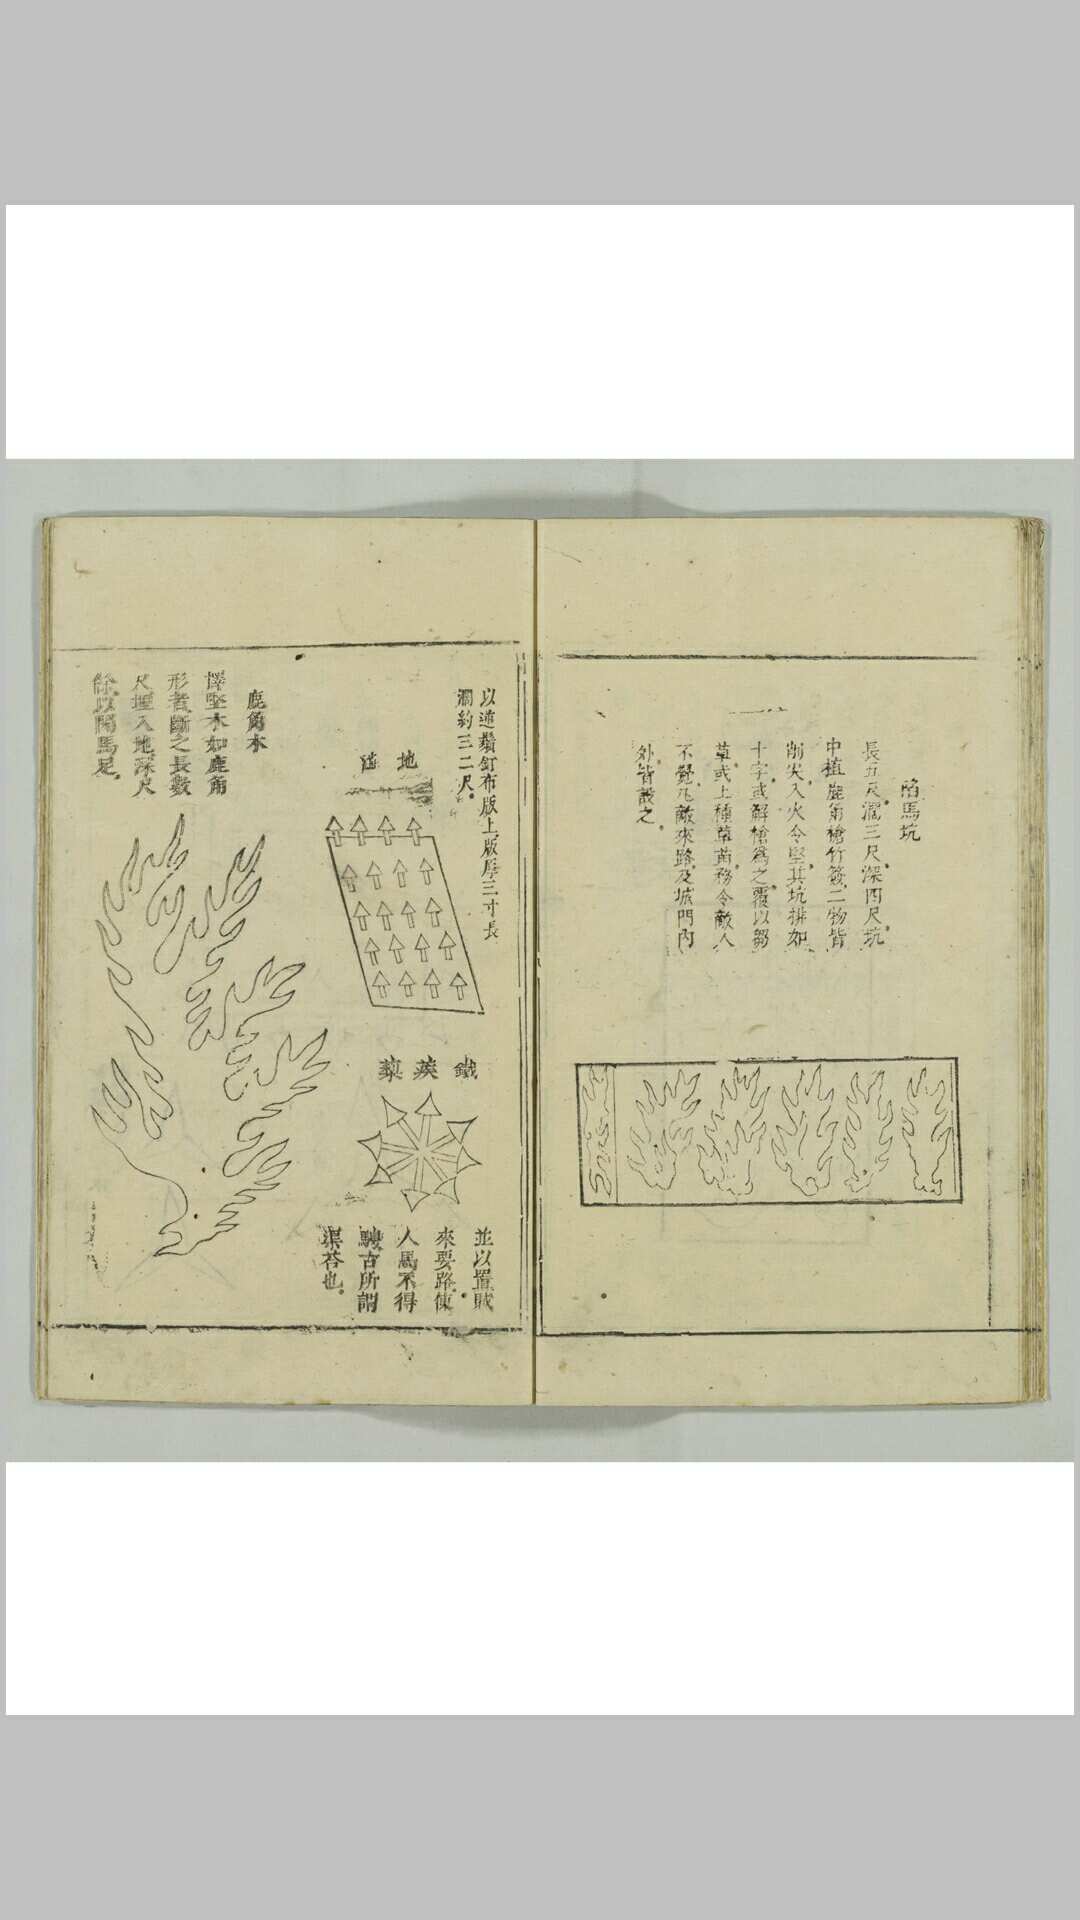 陷馬坑
長五尺濶三尺深四尺坑
中植鹿角槍竹簽二物皆
削尖入火令堅其坑排如
十字或解槍爲之覆以芻
草或上種草苗務令敵人
不覺凡敵來路及城門內
外皆設之
以逆鬚釘布版上版厚三寸長
濶約三二尺
地澁
鐵蒺藜
並以置賊
來要路使
人馬不得
騁古所謂
渠荅也
鹿角木
擇堅木如鹿角
形者斷之長數
尺埋入地深尺
餘以閡馬足